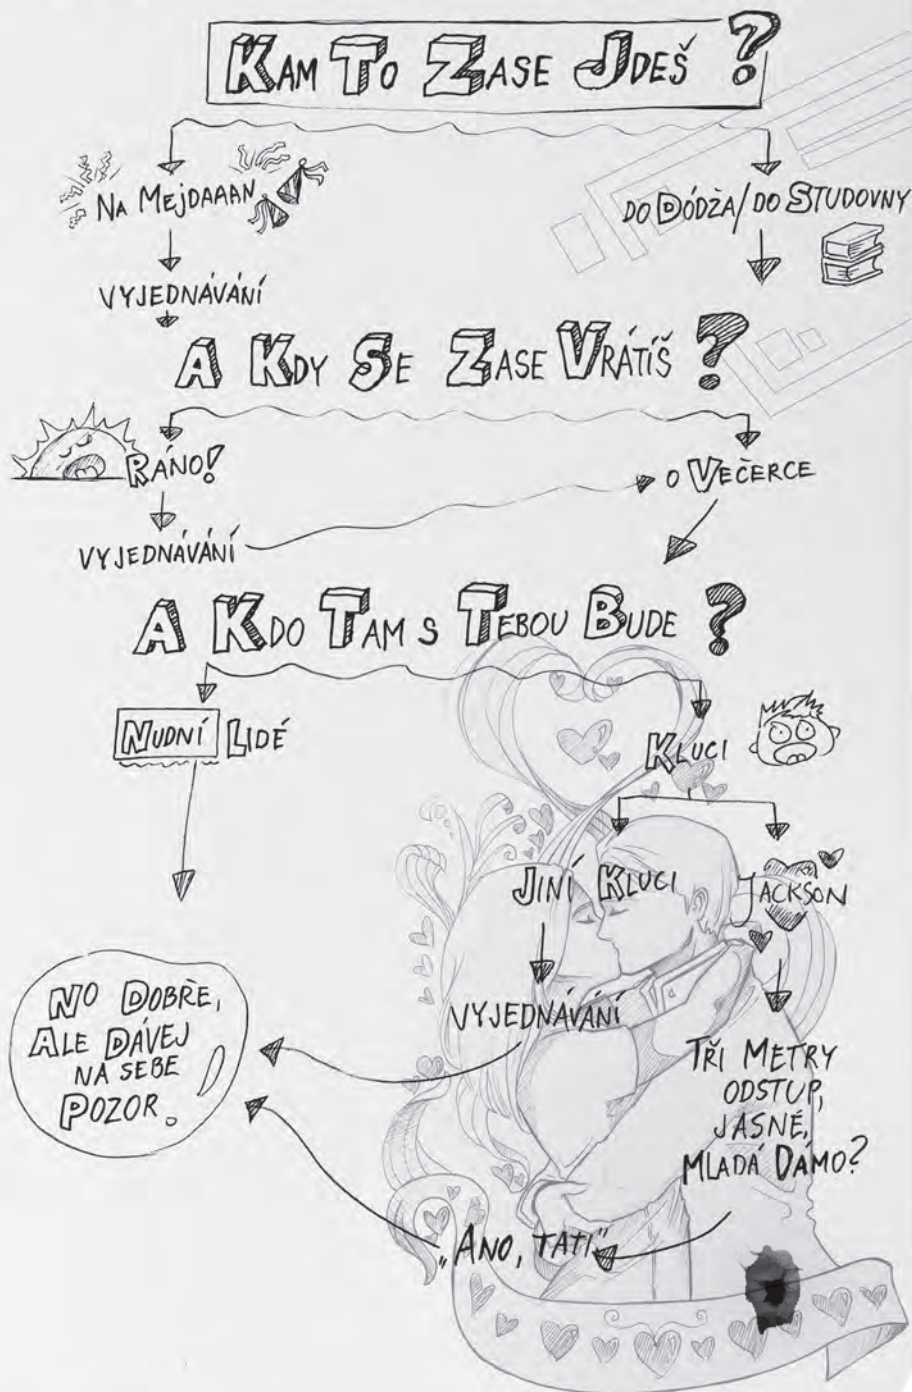 KAM TO ZASE JDEŠ?
NA MEJDAAAN
DO DÓDŽA/DO STUDOVNY
VYJEDNÁVÁNÍ
A KDY SE ZASE VRÁTÍŠ?
RÁNO!
O VEČERCE
VYJEDNÁVÁNÍ
A KDO TAM S TEBOU BUDE?
NUDNÍ LIDÉ
KLUCI
JINÍ KLUCI
JACKSON
VYJEDNÁVÁNÍ
TŘI METRY
ODSTUP,
JASNÉ,
MLADÁ DÁMO?
„ANO, TATI“
NO DOBŘE,
ALE DÁVEJ
NA SEBE
POZOR.